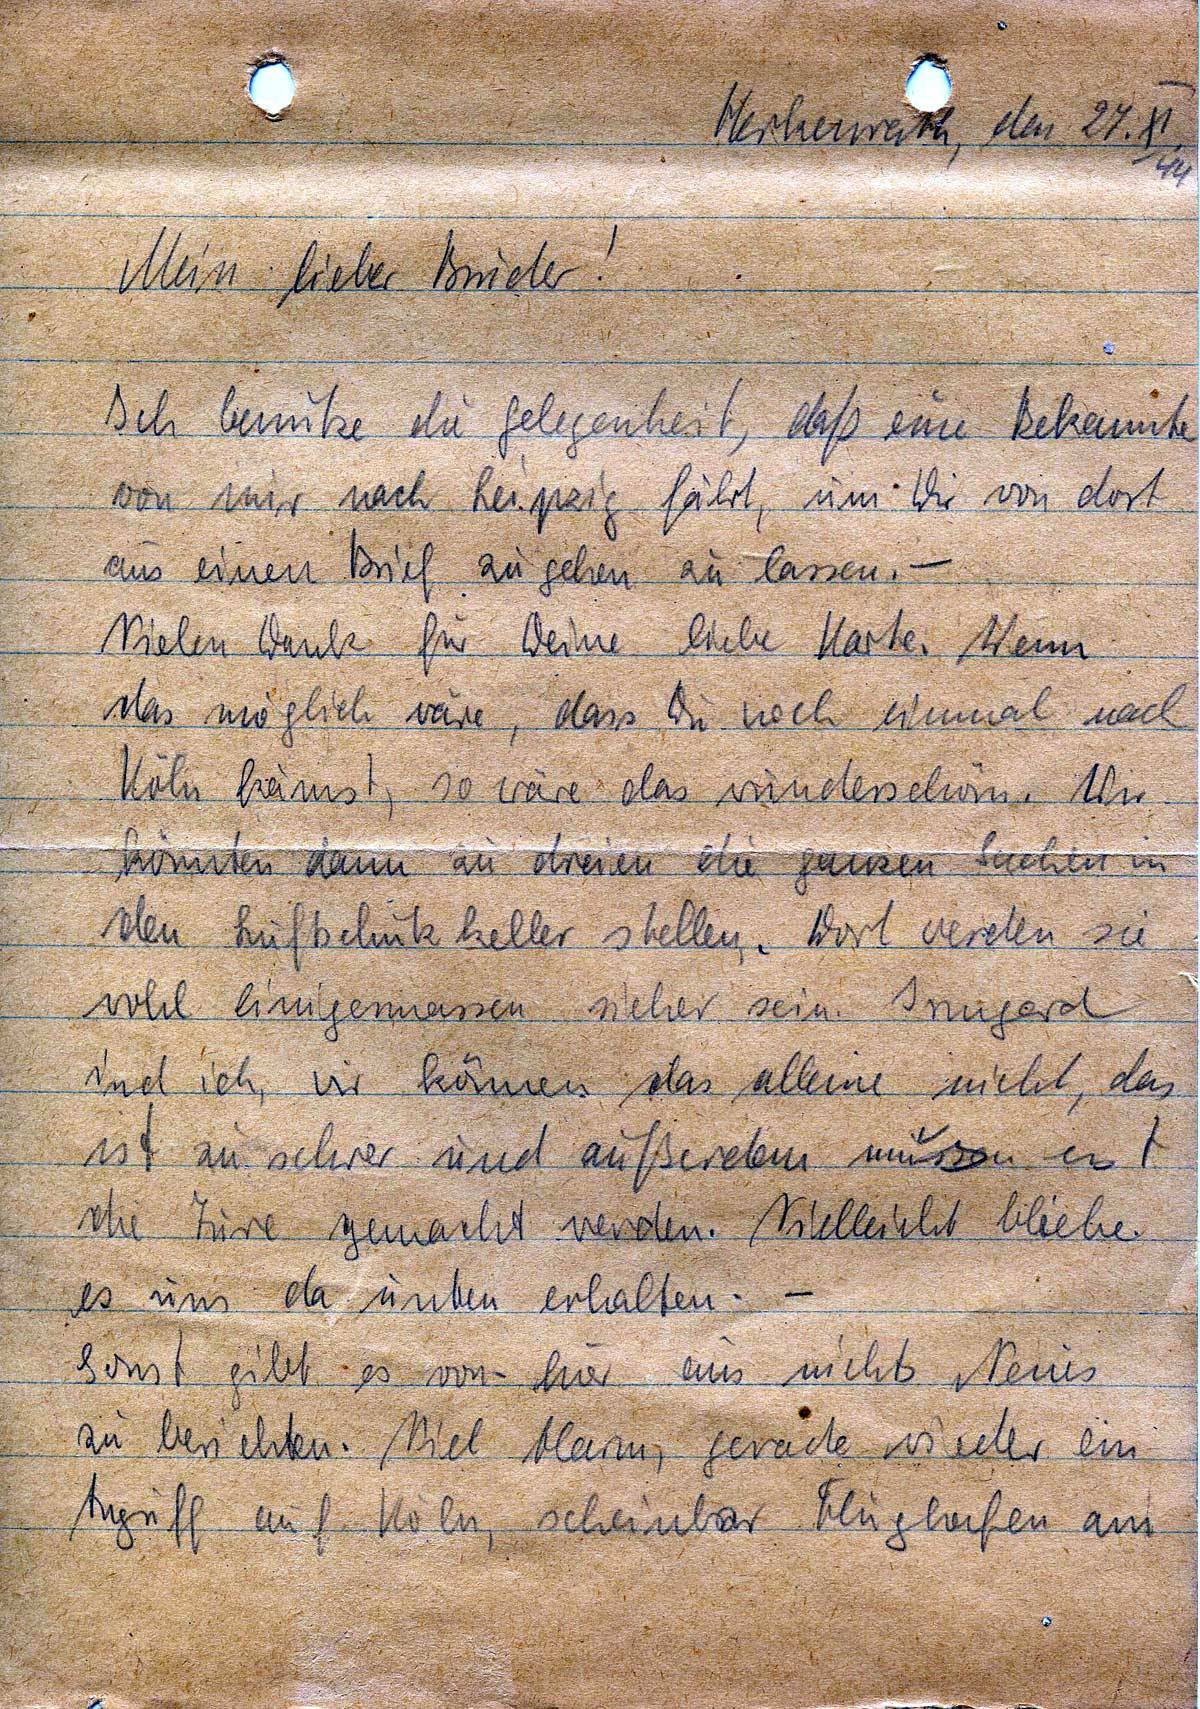 Herkenrath, den 27. XI.
44
Mein lieber Bruder!
Ich benutze die Gelegenheit, daß eine Bekannte
von mir nach Leipzig fährt, um Dir von dort
aus einen Brief zugehen zu lassen. —
Vielen Dank für Deine liebe Karte. Wenn
das möglich wäre, dass Du noch einmal nach
Köln kämst, so wäre das wunderschön. Wir
könnten dann zu dreien die ganzen Sachen in
den Luftschutzkeller stellen. Dort werden sie
wohl einigermassen sicher sein. Irmgard
und ich, wir können das alleine nicht, das
ist zu schwer und außerdem müssen erst
die Türe gemacht werden. Vielleicht bliebe
es uns da unten erhalten. —
Sonst gibt es von hier aus nichts Neues
zu berichten. Viel Alarm, gerade wieder ein
Angriff auf Köln, scheinbar Flughafen am